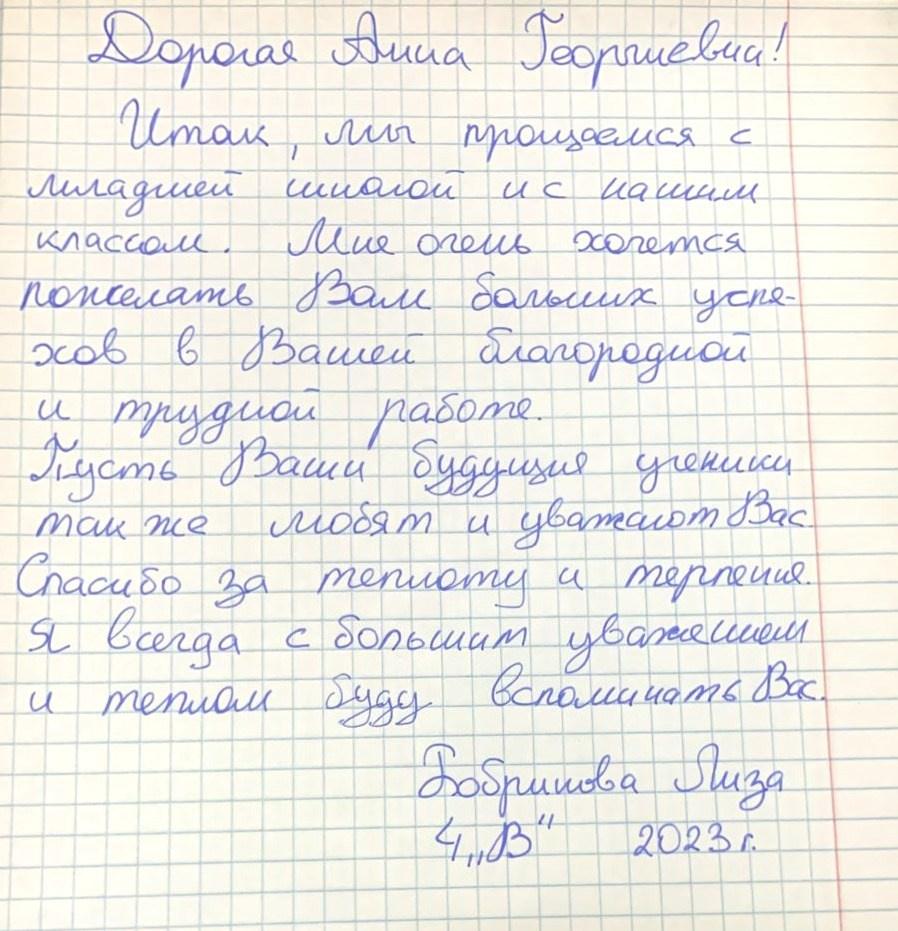 Дорогая Анна Георгиевна!
Итак, мы прощаемся с
младшей школой и с нашим
классом. Мне очень хочется
пожелать Вам больших успе-
хов в Вашей благородной
и трудной работе.
Пусть Ваши будущие ученики
так же любят и уважают Вас.
Спасибо за теплоту и терпение.
Я всегда с большим уважением
и теплом буду вспоминать Вас.
Бобрикова Лиза
4 „В“ 2023 г.